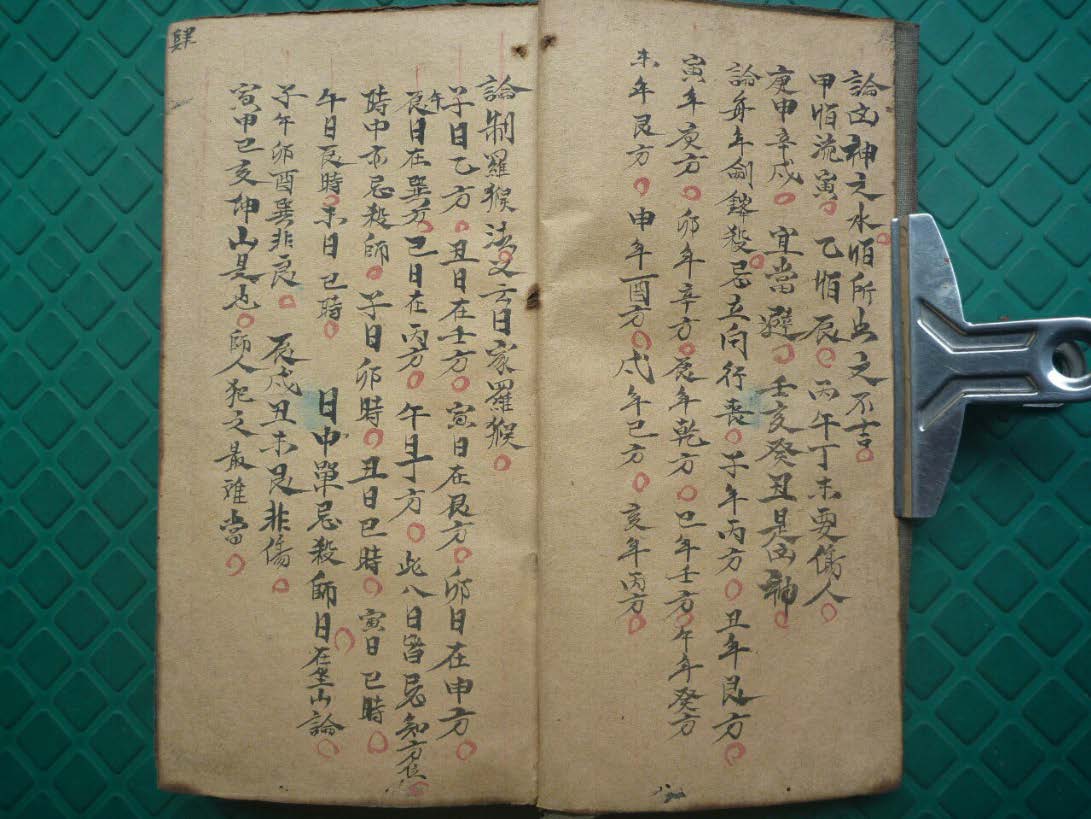 論凶神之水順所出之不吉
甲順流寅 乙順辰 丙午丁未要傷人
庚申辛戌 宜當避 壬亥癸丑是凶神
論每年劍鋒殺忌立向行喪 子午丙方 丑年艮方
寅年庚方 卯年辛方 辰年乾方 巳年壬方 午年癸方
未年艮方 申年酉方 戍年巳方 亥年丙方
肆
論制羅猴法 又云日家羅猴
子日乙方 丑日在壬方 寅日在艮方 卯日在申方
辰日在巽方 巳日在丙方 午日丁方 此八日皆忌
時中亦忌殺師 子日卯時 丑日巳時 寅日巳時
午日辰時 未日巳時 日中單忌殺師日在坐山論
子午卯酉巽非良 辰戍丑未艮非傷
寅甲巳亥坤山是也 師人犯之最难當